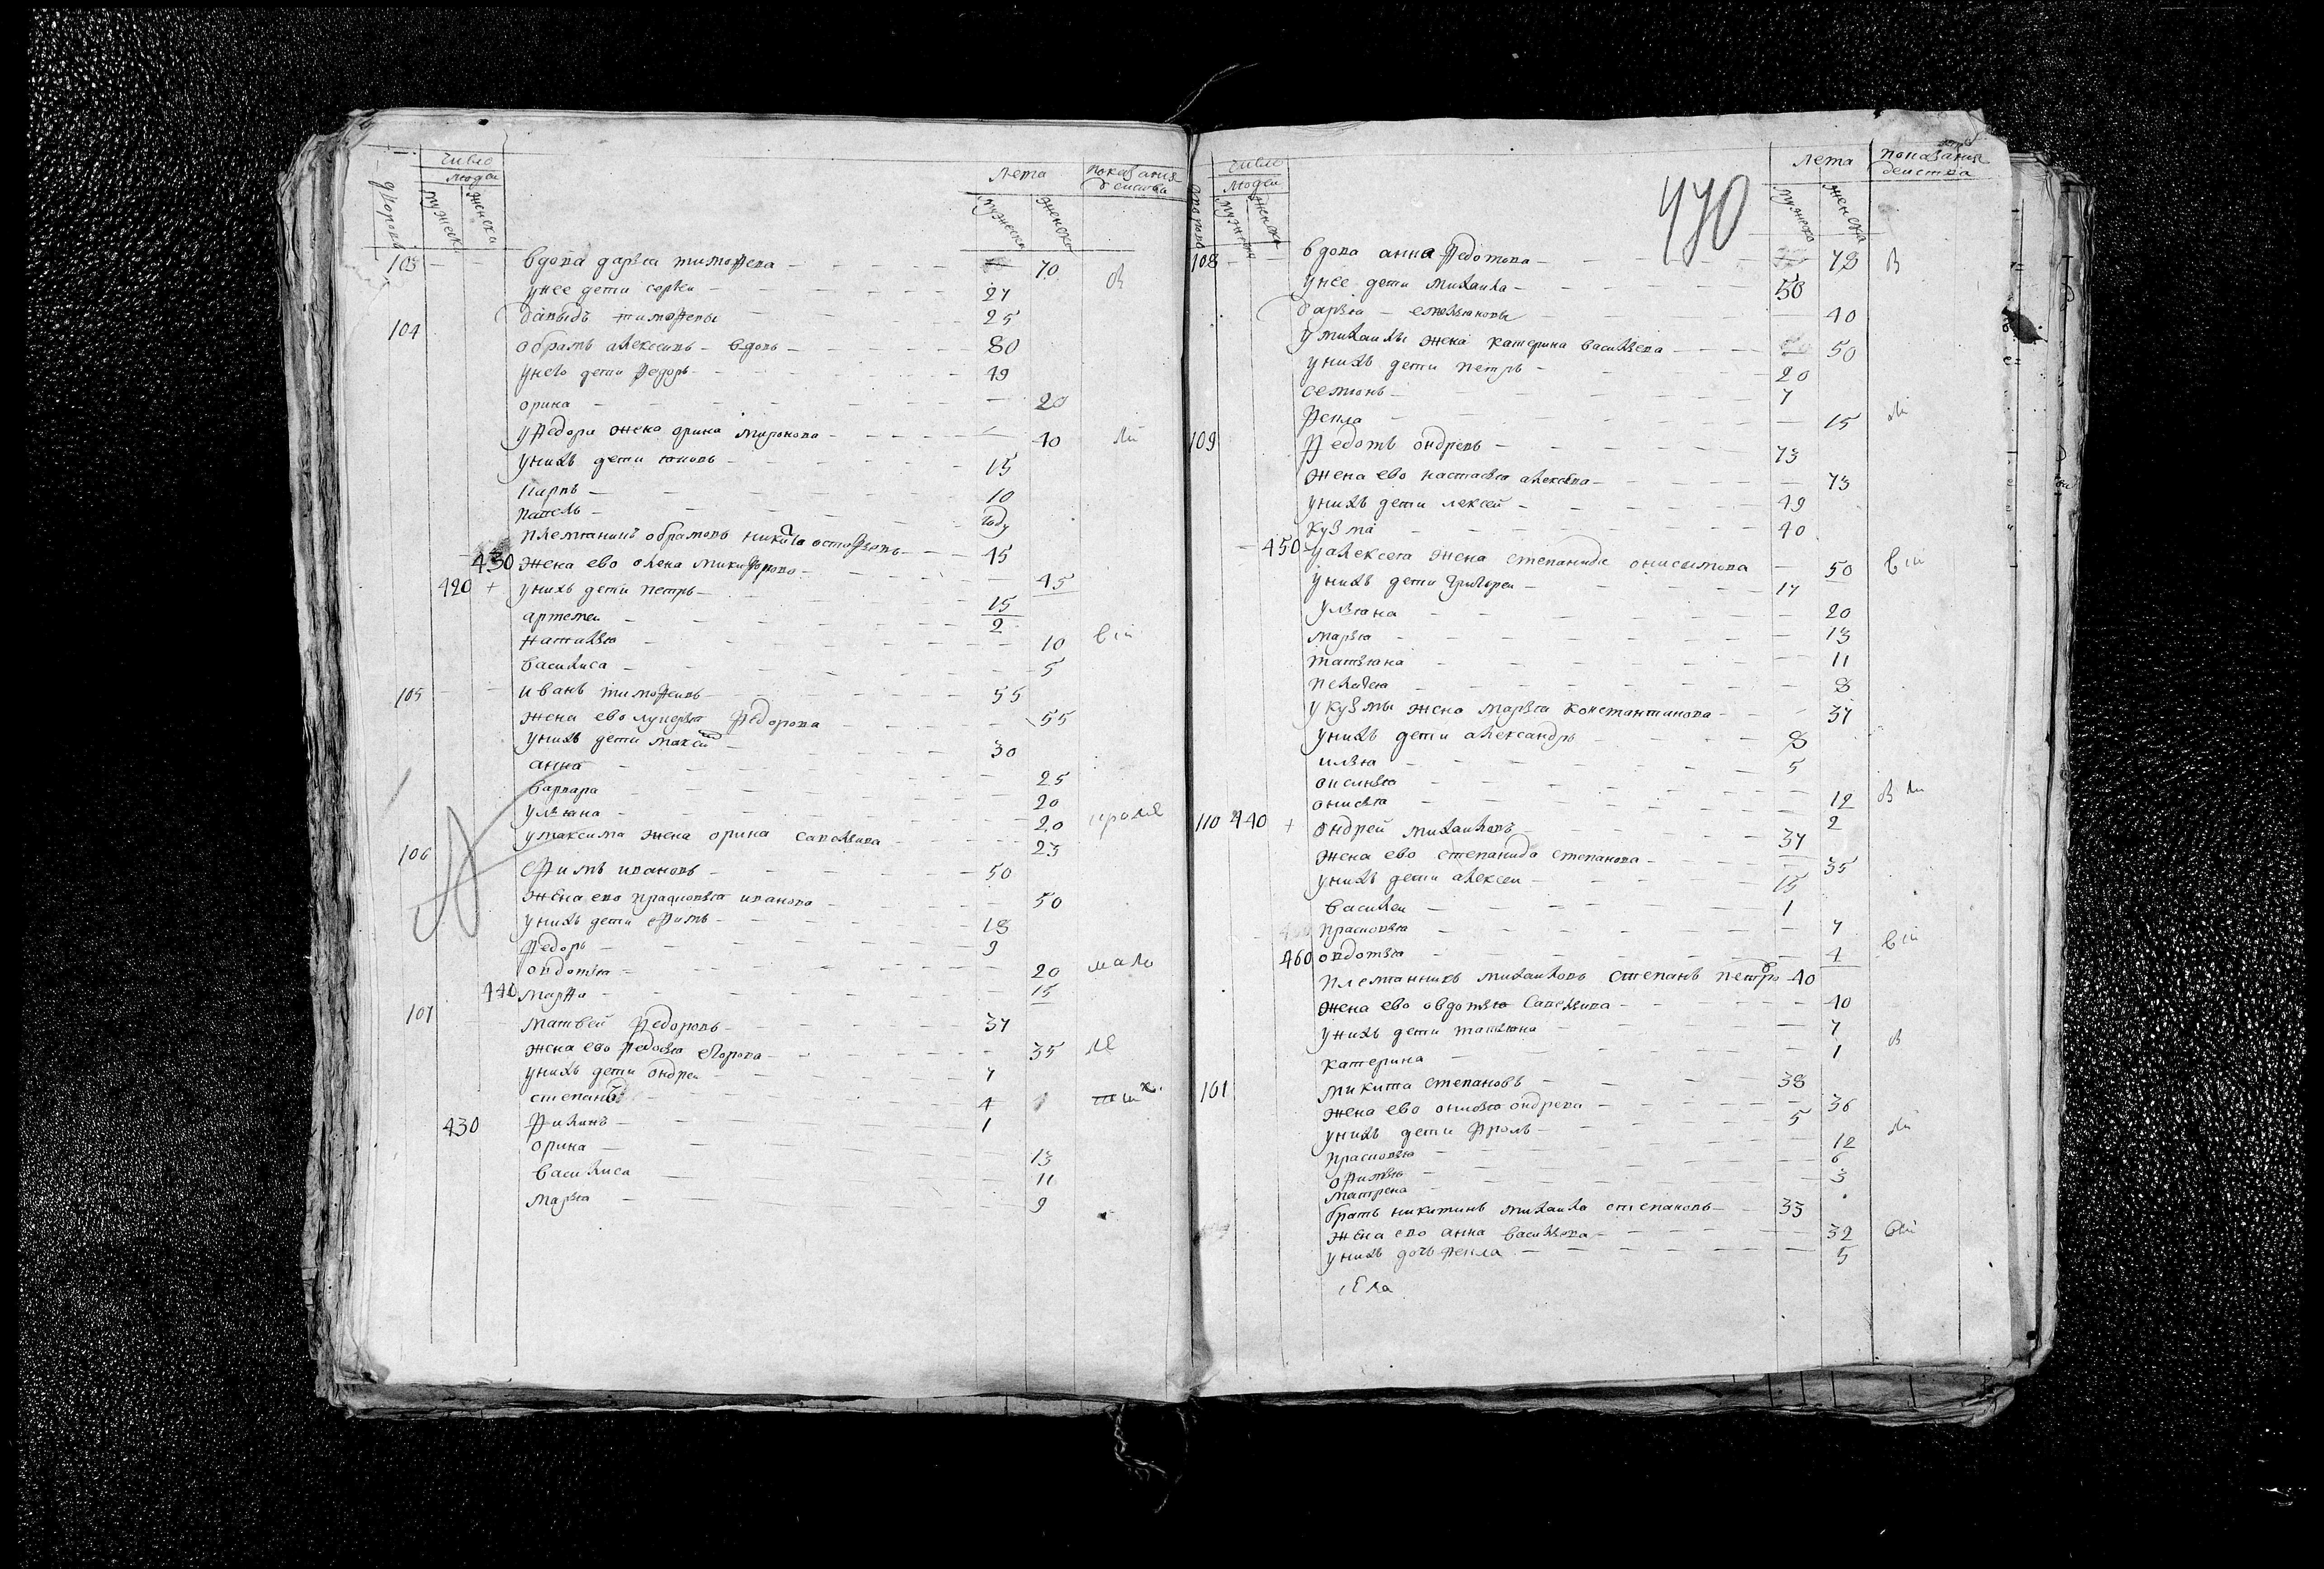 число
людей
дворовъ
мужеска
женска
Лета
показания
мужеска
женска
103 вдова дарья тимофева 70
у нее дети сергеи 27
давыдъ тимофевы 25
104 обрамъ алексеивъ вдовъ 80
у него дети федоръ 49
орина 20
у федора жена орина миронова 40
у нихъ дети 15
10
павелъ году
племянникъ обрамовъ никита 45
430 жена ево олена микифорова 45
420 + у нихъ дети петръ 15
артемеи 2
наталья 10
василиса 5
105 иванъ тимофеивъ 55
жена ево лукерья федорова 55
у нихъ дети максим 30
анна 25
варвара 20
ульяна 20
у максима жена орина савельива 23
106 ефимъ ивановъ 50
жена ево прасковья иванова 50
у нихъ дети ефимъ 18
федоръ 9
овдотья 20
440 марфа 15
107 матвей федоровъ 37
жена ево федосья егорова 35
у нихъ дети ондреи 7
степанъ 4
430 филипъ 1
орина 13
василиса 11
марья 9
470
число
людеи
мужеска
женска
лета
показания
мужеска
женска
108 вдова анна федотова 78 в
у нее дети михаила 50
дарья емельяновы 40
у михаилы жена катерина васильева 50
у нихъ дети петръ 20
семионъ 7
фекла 15
109 федотъ ондревъ 73
жена ево настасья алексева 73
у нихъ дети лексей 49
кузма 40
450 у алексея жена степанида онисимова 50
у нихъ дети григореи 17
ульяна 20
марья 13
татьяна 11
пелагея 8
у кузмы жена марья константинова 37
у нихъ дети александръ 8
илья 5
оксинья 12
онисья 2
110 440 + ондрей михаиловъ 37
жена ево степанида степанова 35
у нихъ дети алексеи 15
василеи 1
прасковья 7
460 овдотья 4
племянникъ михаиловъ степанъ петро 40
жена ево овдотья савельива 40
у нихъ дети татьяна 7
катерина 1
101 микита степановъ 38
жена ево онисья ондрева 36
у нихъ дети фролъ 5
прасковья 12
офимья 6
матрена 3
братъ никитинъ михаила степановъ 33
жена ево анна васильева 32
у нихъ дочь фекла 5